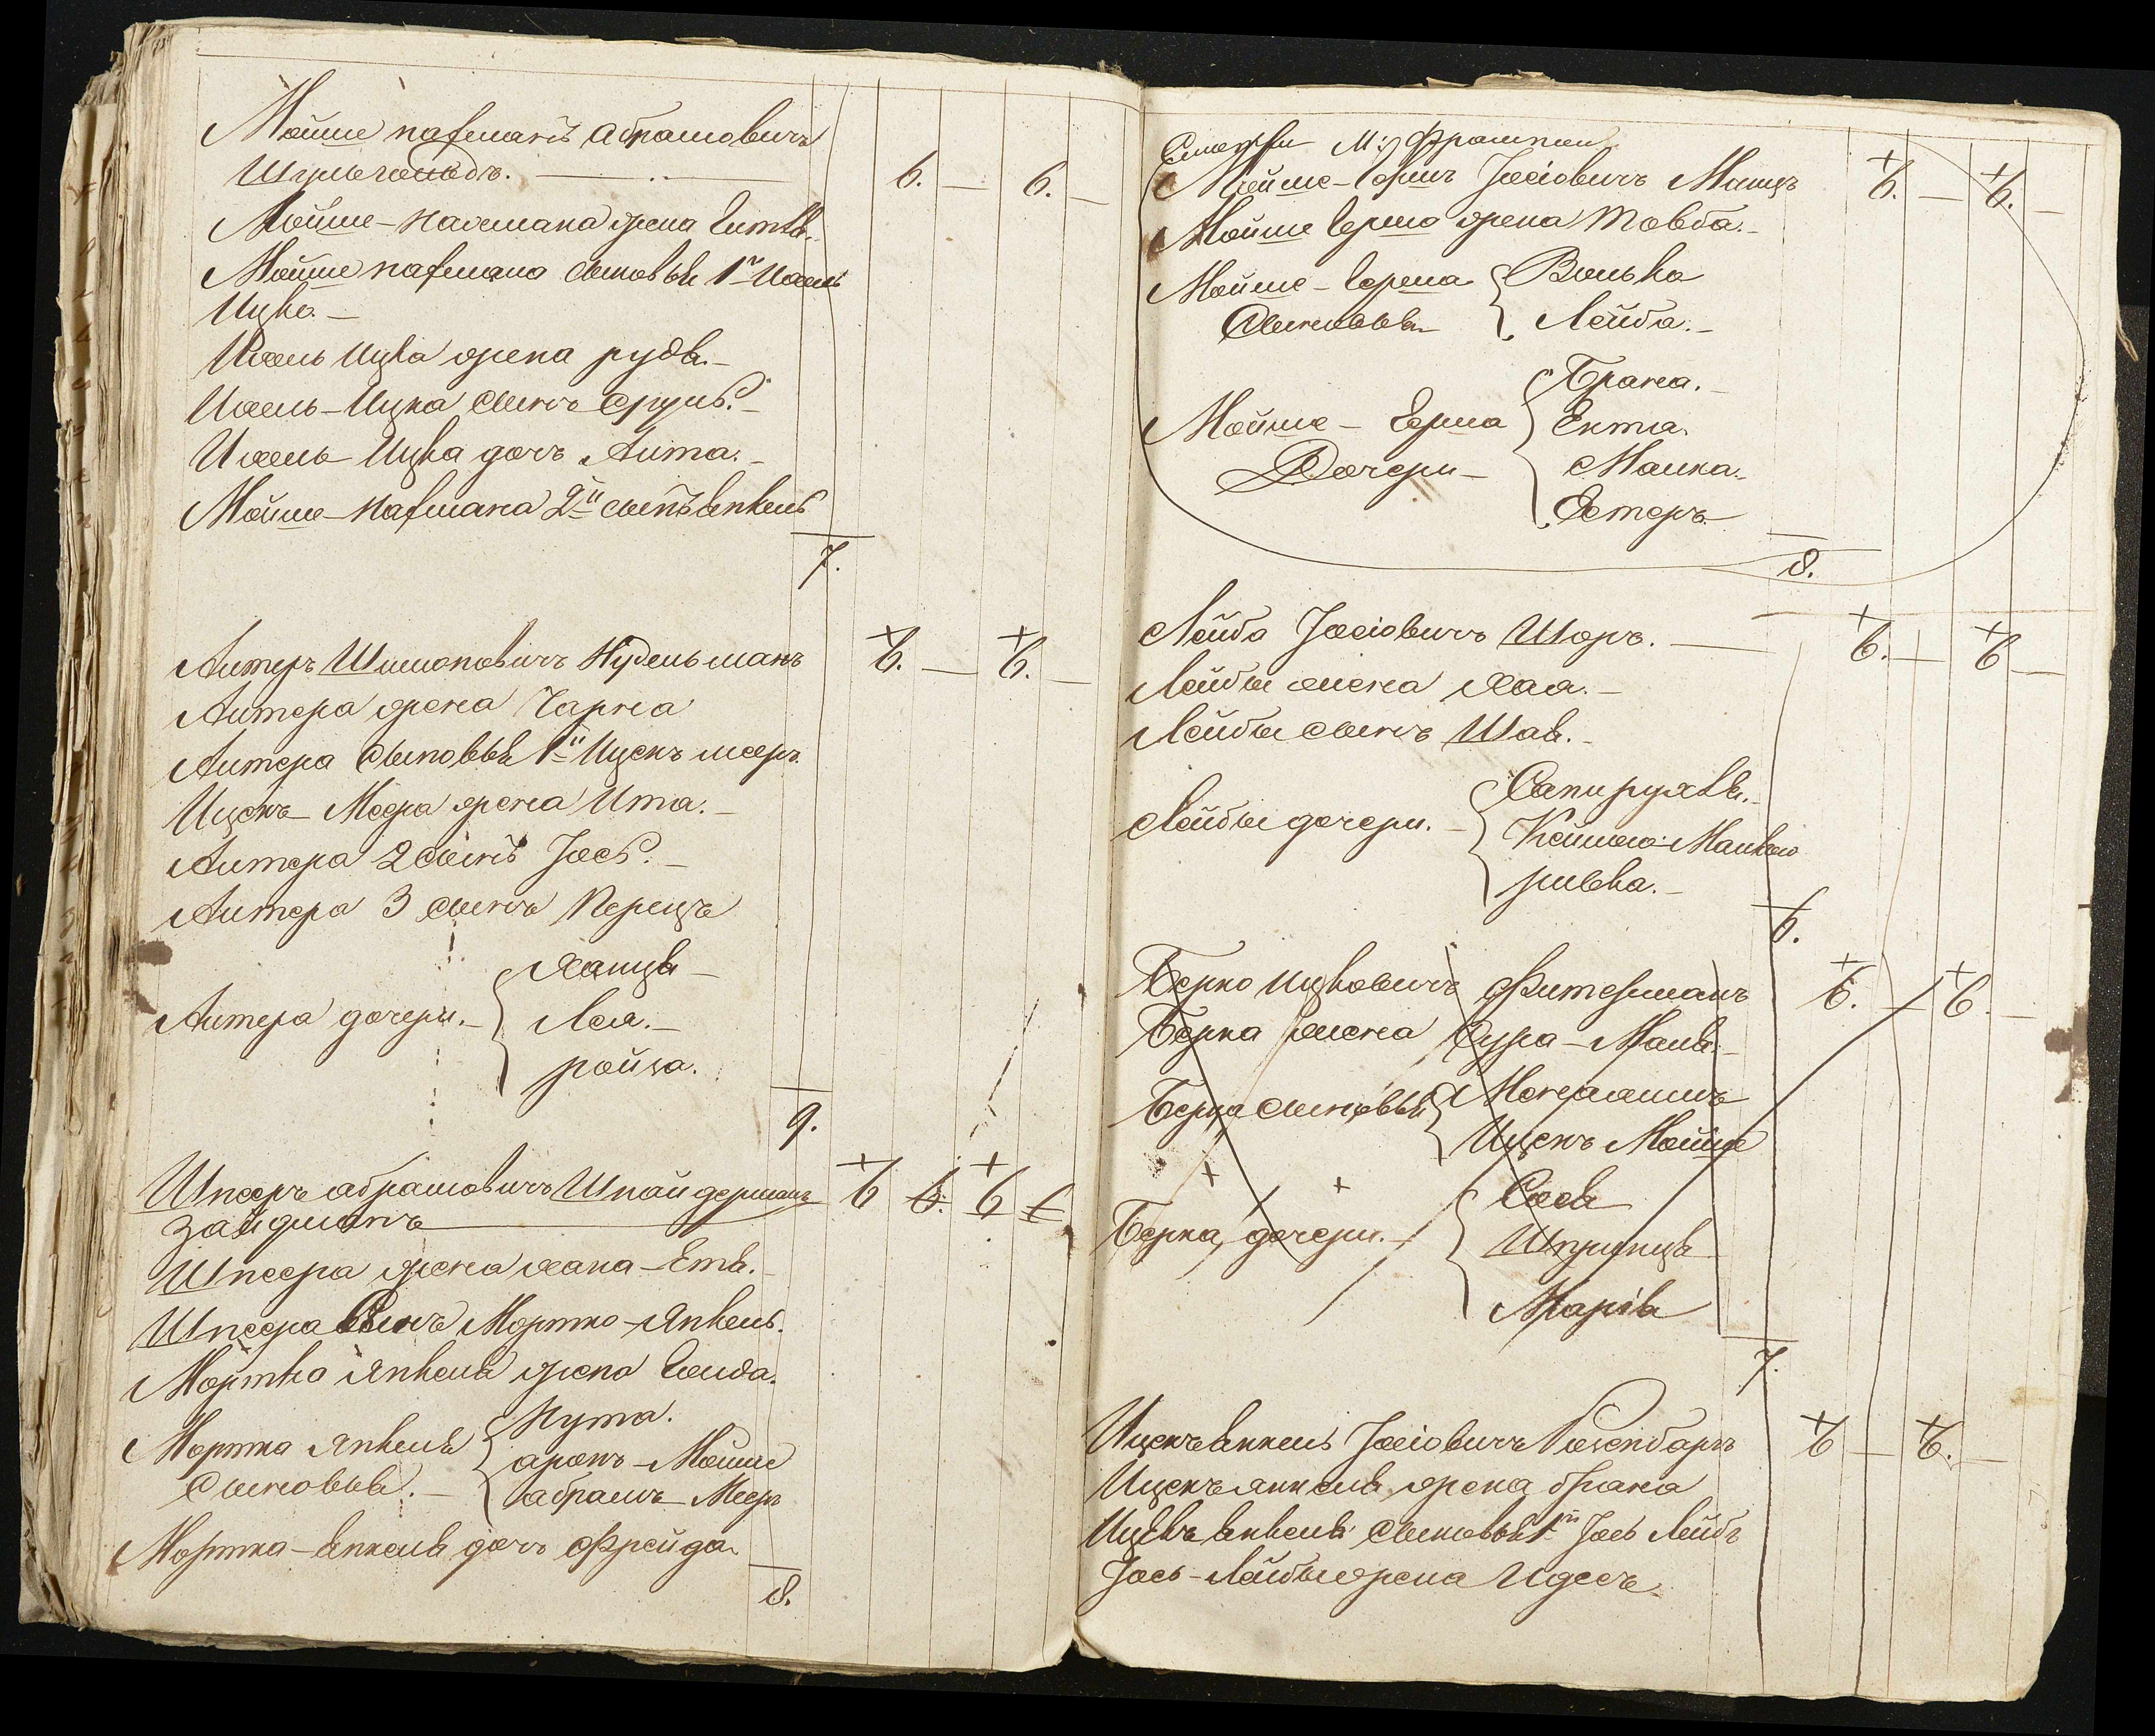 Мойше нафманъ Абрамовичъ
6. — 6. —
Мойше-нафмана жена Гитля
Мойше нафмана сыновья 1й Иосель
Ицко. —
Иосель Ицка жена рудя. —
Иосель-Ицка сынъ Срулъ. —
Иосель Ицка дочь Аита. —
Мойше-нафмана 2й сынъ Янкель
7.
Аитеръ Шимоновичъ Нудельманъ 6. — 6. —
Аитера жена Чарна
Аитера сыновья 1й Ицекъ меер.
Ицекъ-Меера жена Ита. —
Аитера 2 сынъ Іосъ. —
Аитера 3 сынъ Перецъ
Аитера дочери. —
Ханця —
Лея. —
ройза.
9.
Шпееръ абрамовичъ Шнайдерманъ 6 6. 6 6
Зайдманъ
Шпеера жена хана-Етя. —
Шпеера Сынъ Мортко-Янкель.
Мортко Янкеля жена Голда.
Мортка Янкеля
Сыновья. —
Нута.
аронъ-Мойше
абрамъ-Меер
Мортка-Янкеля дочь Фрейда.
8.
Мойше-Герш Іосіовичъ Манцъ 6. — 6. —
Мойше Герша жена Товба. —
Мойше-Герша
Сыновья
Волько
Лейба. —
Мойше-Герша
Дочери —
Брана. —
Ента.
Малка. —
Естеръ. —
8.
Лейба Іосіовичъ Шоръ. — 6. — 6 —
Лейбы жена Хая. —
Лейбы сынъ Шая. —
Лейбы дочери. —
Сапирухля. —
Ривка. —
6.
Берко Ицковичъ Фитерманъ 6. — 6. —
Берка жена Сура-Маля. —
Берка сыновья
Ицекъ Мойше
Берка дочери. —
Сося
Шпринця
Марія
7.
Ицекъ Янкель Іосіовичъ Розенбаръ 6 — 6. —
Ицекъ янкеля жена брана
Ицекъ Янкеля сыновья 1й Іось Лейбъ
Іось-Лейбы жена Идесъ.